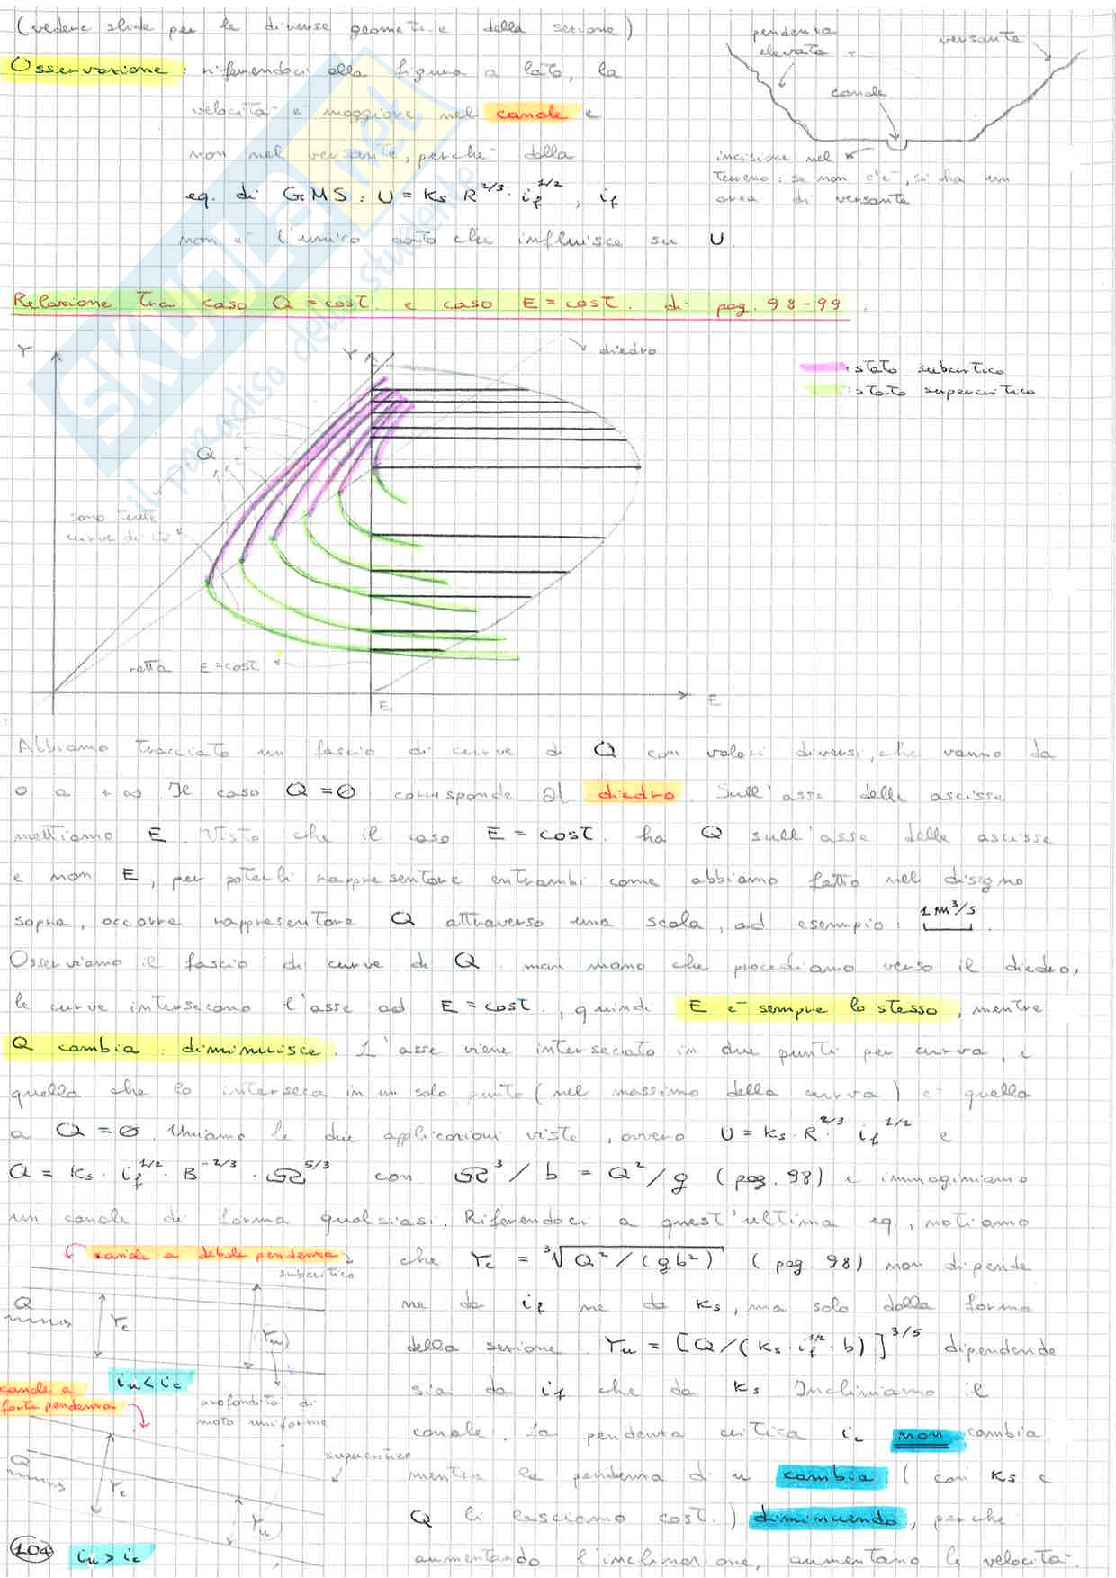 (vedere slide per le diverse geometrie della sezione)
Osservazione: riferendoci alla figura a lato, la
velocità è maggiore nel canale e
non nel versante, perché dalla
eq. di G.M.S: U = Ks R^2/3 · if^1/2, if
non è l'unico dato che influisce su U.
pendenza
elevata
versante
canale
incisione nel
terreno: se non c'è, si ha un
area di versante
Relazione tra caso Q = cost. e caso E = cost. di pag. 98-99.
Y
Y
diedro
: stato subcritico
: stato supercritico
Q
sono tutte
curve di
retta E = cost
E
E
Abbiamo tracciato un fascio di curve di Q con valori diversi, che vanno da
0 a +∞. Il caso Q = 0 corrisponde al diedro. Sull'asse delle ascisse
mettiamo E. Visto che il caso E = cost. ha Q sull'asse delle ascisse
e non E, per poterli rappresentare entrambi come abbiamo fatto nel disegno
sopra, occorre rappresentare Q attraverso una scala, ad esempio: 1 m³/s.
Osserviamo il fascio di curve di Q man mano che procediamo verso il diedro,
le curve intersecano l'asse ad E = cost., quindi E è sempre lo stesso, mentre
Q cambia: diminuisce. L'asse viene intersecato in due punti per curva, e
quella che lo interseca in un solo punto (nel massimo della curva) è quella
a Q = 0. Uniamo le due applicazioni viste, ovvero U = Ks · R^2/3 · if^1/2 e
Q = Ks · if^1/2 · B^-2/3 · Ω^5/3 con Ω³/b = Q²/g (pag. 98) e immaginiamo
un canale di forma qualsiasi. Riferendoci a quest'ultima eq, notiamo
che Yc = ³√Q²/(gb²) (pag 98) non dipende
ne da if ne da Ks, ma solo dalla forma
della sezione. Yu = [Q/(Ks · if^1/2 · b)]^3/5 dipendende
sia da if che da Ks. Incliniamo il
canale. La pendenza critica ic non cambia
mentre la pendenza di u cambia (con Ks e
Q li lasciamo cost.) diminuendo, perché
aumentando l'inclinazione, aumentano le velocità.
canale a debole pendenza
subcritico
Q
Yc
Yu
iu < ic
profondità di
moto uniforme
canale a
forte pendenza
supercritico
Q
Yc
Yu
iu > ic
104
SKUOLA.net
il paradiso dello studente